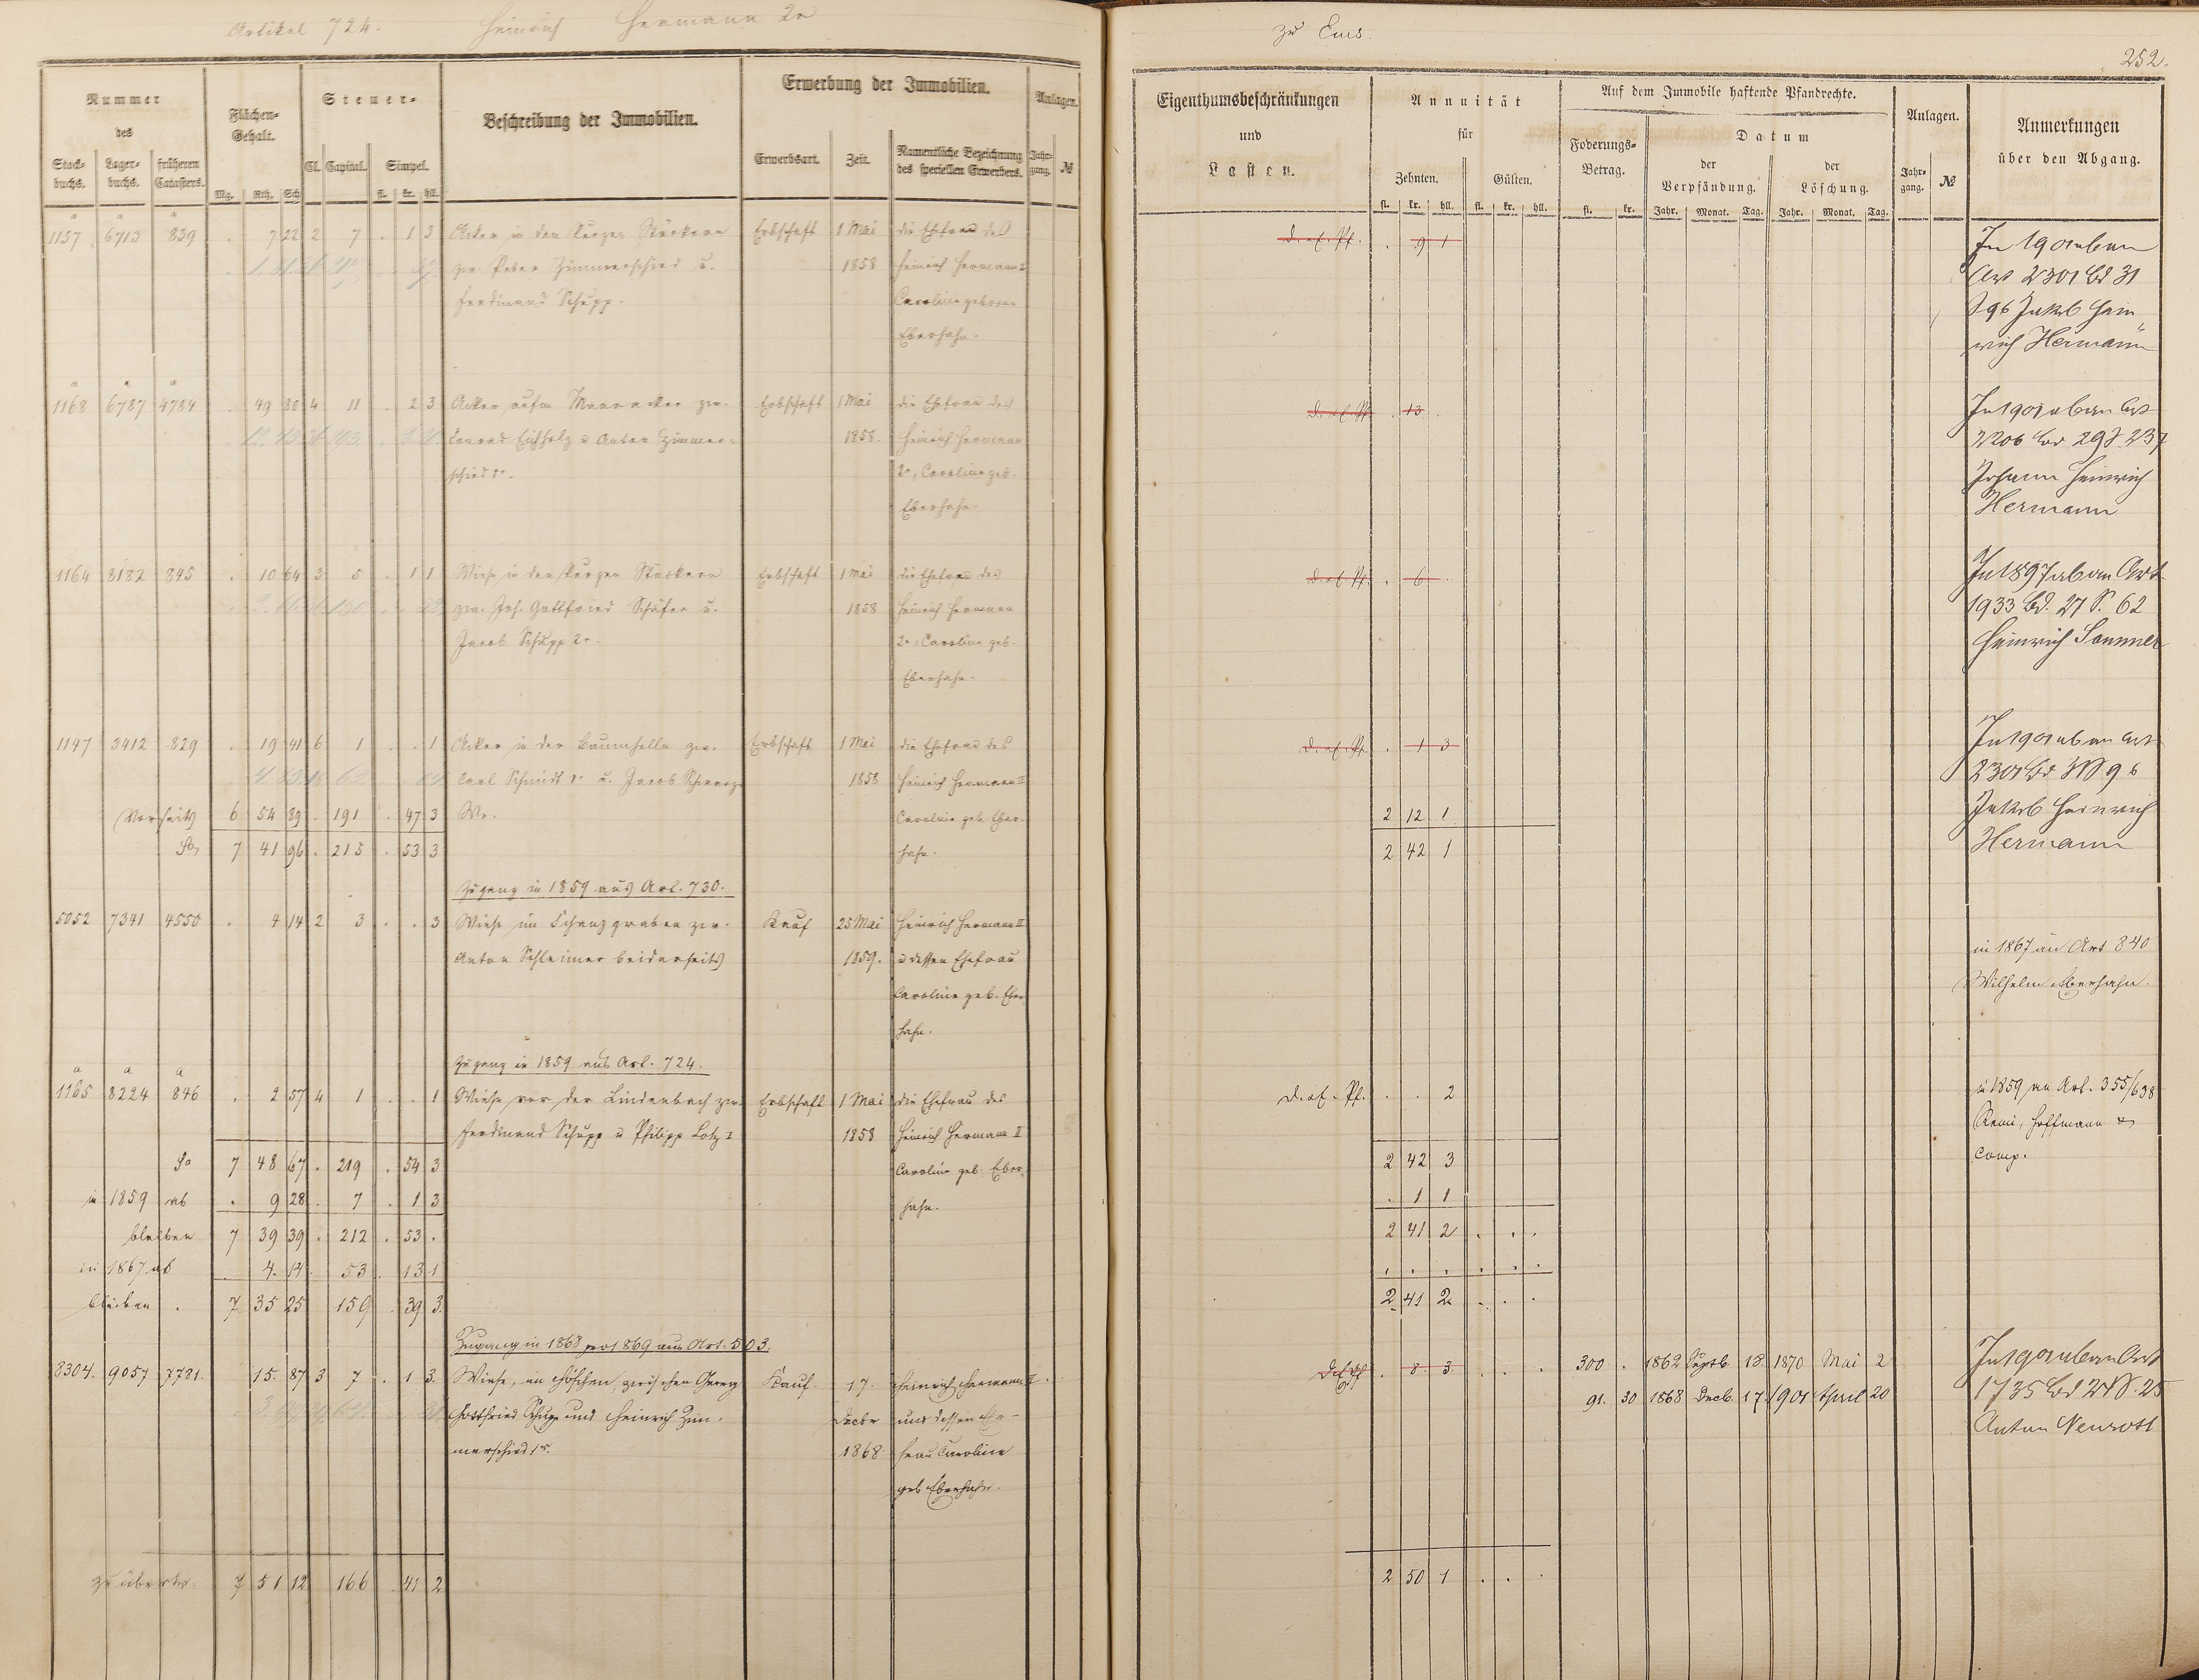 Artikel 724. Heinrich Hermann 2r
zu Ems
252.
Nummer des
Stock-buchs. Lager-buchs. früheren Catasters.
Flächen-Gehalt.
Mg. Rth. Sch
Steuer-
Cl. Capital. Simpel.
fl. kr. hll.
Beschreibung der Immobilien.
Erwerbung der Immobilien.
Erwerbsart. Zeit. Namentliche Bezeichnung des speciellen Erwerbers.
Anlagen.
Jahr-gang. №
Eigenthumsbeschränkungen
und
Lasten.
Annuität
für
Zehnten. Gülten.
fl. kr. hll. fl. kr. hll.
Auf dem Immobile haftende Pfandrechte.
Foderungs-Betrag.
fl. kr.
Datum
der Verpfändung. der Löschung.
Jahr. Monat. Tag. Jahr. Monat. Tag.
Anlagen.
Jahr-gang. №
Anmerkungen
über den Abgang.
a a a
1157 6713 839 . 7 22 2 7 . 1 3 Acker in den kurzen Stückern Erbschaft 1 Mai die Ehefrau des
zw. Peter Zimmerschied u. 1858 Heinrich Hermann 2r
Ferdinand Schupp. Caroline geborne
Eberhahn.
d. ef. Pf. . 9 1
In 1901 ab an
Art 2301 Bd 31
S 96 Jakob Hein
rich Hermann
a a a
1168 6787 4784 . 49 80 4 11 . 2 3 Acker, aufm Maaracker zw. Erbschaft 1 Mai die Ehefrau des
Conrad Eichholz u Anton Zimmer- 1858. Heinrich Hermann
schied 1r. 2r, Caroline geb.
Eberhahn.
d. ef. Pf . 13 .
In 1901 ab an Art
2206 Bd 29 S 237
Johann Heinrich
Hermann
1164 8182 845 . 10 64 3 5 . 1 1 Wiese in den kurzen Stückern Erbschaft 1 Mai die Ehefrau des
zw. Joh. Gottfried Schäfer u. 1858 Heinrich Hermann
Jacob Schupp 2r. 2r, Caroline geb.
Eberhahn.
d. ef. Pf. . 6 .
In 1897 ab an Art
1933 Bd. 27 S. 62
Heinrich Sommer
1147 3412 829 . 19 41 6 1 . . 1 Acker in der Baumhelle zw. Erbschaft 1 Mai die Ehefrau des
Carl Schmidt 1r u. Jacob 1858 Heinrich Hermann II
Vorseite 6 54 89 . 191 . 47 3 We. Caroline geb. Eber-
Sa 7 41 96 . 215 . 53 3 hahn.
d. ef. Pf. . 1 3
2 12 1
2 42 1
In 1901 ab an Art
2301 Bd 31 S 96
Jakob Heinrich
Hermann
Zugang in 1859 aus Art. 730.
5052 7341 4550 . 4 14 2 3 . . 3 Wiese im Schanzgraben zw. Kauf 25 Mai Heinrich Hermann II
Anton Schleimer beiderseits 1859. u dessen Ehefrau
Caroline geb. Eber
hahn.
in 1867 an Art 840
Wilhelm Eberhahn.
Zugang in 1859 aus Art. 724.
a a a
1165 8224 846 . 2 57 4 1 . . 1 Wiese vor der Lindenbach zw. Erbschaft 1 Mai die Ehefrau des
Ferdinand Schupp u Philipp Lotz I 1858 Heinrich Hermann II
Sa 7 48 67 . 219 . 54 3 Caroline geb. Eber
in 1859 ab . 9 28 . 7 . 1 3 hahn.
bleiben 7 39 39 . 212 . 53 .
in 1867 ab . 4. 14 . 53 . 13 1
bleiben . 7 35 25 159 . 39 3.
d. ef. Pf. . . 2
2 42 3
. 1 1
2 41 2 . . .
. . . . . .
2 41 2 . . .
in 1859 an Art. 355/638
Remi, Hoffmann &
Comp.
Zugang in 1868 pro 1869 aus Art. 503.
8304. 9057 7781. . 15. 87 3 7 . 1 3. Wiese, im Höfchen, zwischen Georg Kauf. 17. Heinrich Hermann II
Gottfried Schupp und Heinrich Zim- Decbr und dessen Ehe-
merschied 1r. 1868 frau Caroline
geb Eberhahn.
d. ef. Pf . 8 3 . . .
300 . 1862 Septb. 18. 1870 Mai 2
91. 30 1868 Decb. 17. 1901 April 20
In 1901 ab an Art
1735 Bd 24 S. 25
Anton Neurott
zu übertr. 7 51 12 166 . 41 2
2 50 1 . . .